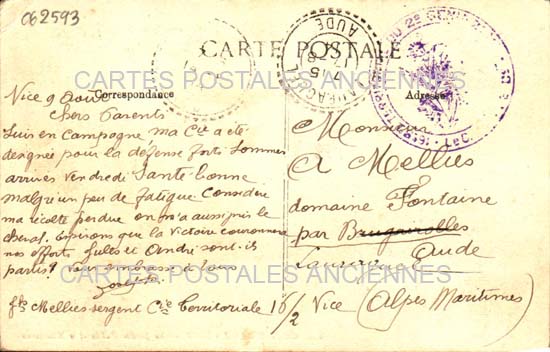 062593
CARTE POSTALE
AUDE
CARTES POSTALES ANCIENNES
Correspondance
Adresse
Nice 9 Août
Chers Parents
Suis en Campagne ma Cie a été
designée pour la défense forts Sommes
arrivés Vendredi Santé bonne
malgré un peu de fatigue Considere
ma récolte perdue on m'a aussi pris le
cheval. Espérons que la Victoire couronnera
nos efforts Jules et André sont-ils
partis?
à tous
Mellies sergent Cie Territoriale 16/2 Nice (Alpes Maritimes)
Monsieur
A Mellies
domaine Fontaine
par Brugairolles
Aude
CARTES POSTALES ANCIENNES